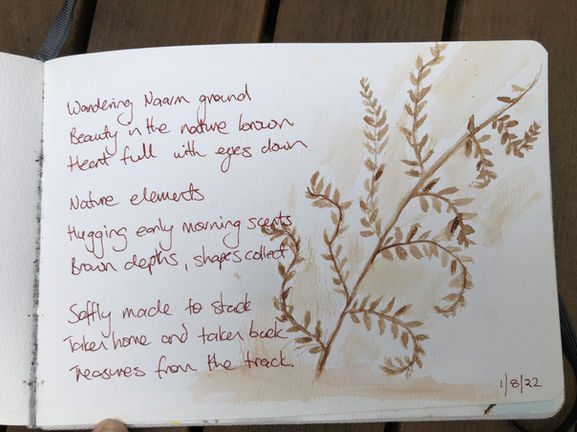 Wandering Naarm ground
Beauty in the nature brown
Heart full with eyes down
Nature elements
Hugging early morning scents
Brown depths, shapes collect
Softly made to stack
Taken home and taken back
Treasures from the track.
1/8/22